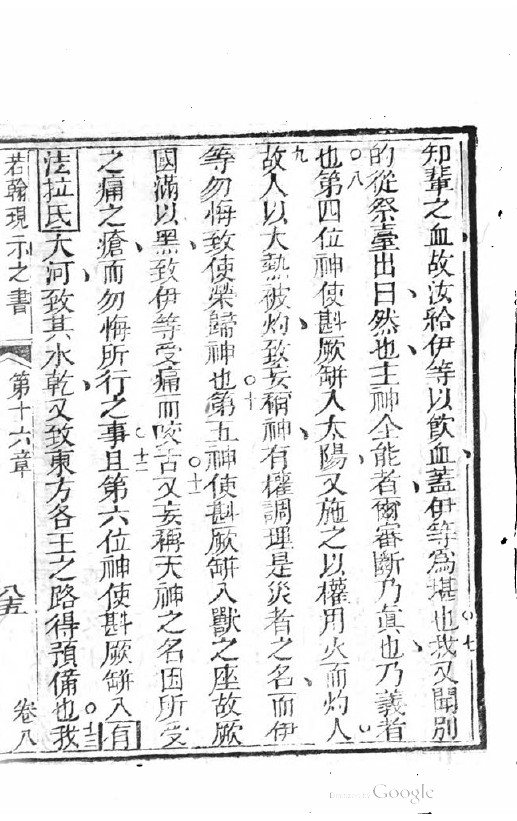 知輩之血故汝給伊等以飲血蓋伊等爲堪也○七我又聞別
的從祭臺出曰然也主神全能者爾審斷乃眞也乃義者
○八也第四位神使斟厥缾入太陽又施之以權用火而灼人○
九故人以大熱被灼致妄稱神有權調理是災者之名而伊
等勿悔致使榮歸神也○十第五神使斟厥缾入獸之座故厥
國滿以黑致伊等受痛而咬舌○十一又妄稱天神之名因所受
之痛之瘡而勿悔所行之事○十二且第六位神使斟厥缾入有
法拉氐大河致其水乾又致東方各王之路得預備也○十三我
若翰現示之書 第十六章 八五 卷八
Digitized by Google